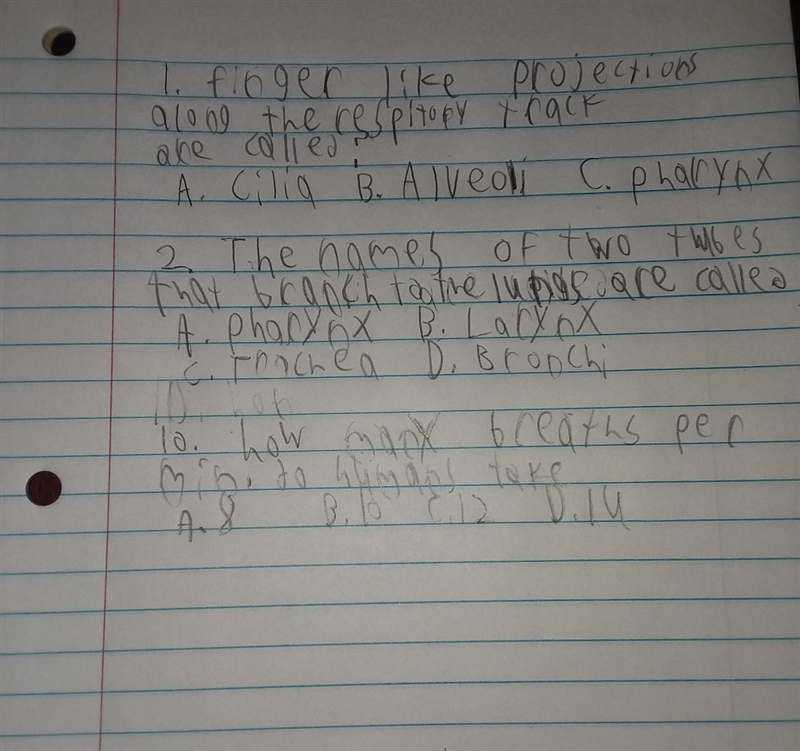 1. finger like projections
along the respitopy track
are called?
A. Cilia B. Alveoli C. pharynx
2. The names of two tubes
that branch to the lungs are called
A. pharynx B. Larynx
C. Trachea D. Bronchi
10. how
10. how many breaths per
Min. to humans take
A. 8 B. 10 C. 12 D. 14